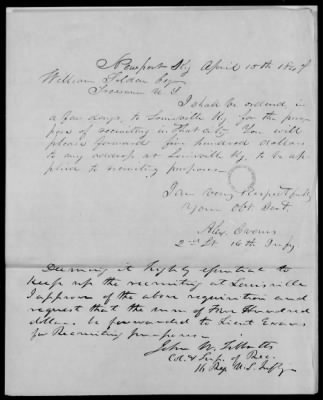 Newport Ky April 18th 1847
William Selden Esq
Treasurer U.S.
I shall be ordered in
a few days, to Louisville Ky. for the pur-
pose of recruiting in that city. You will
please forward five hundred dollars
to my address at Louisville Ky. to be ap-
plied to recruiting purposes
I am Very Respectfully
Your Obt Servt.
Alex. Evans
2nd Lt 16th Infy
Deeming it highly essential to
keep up the recruiting at Louisville
I approve of the above requisition and
request that the sum of Five Hundred
dollars be forwarded to Lieut Evans
for Recruiting purposes
John W. Tibbatts
Col. & Sup. of Rec.
16 Reg U.S. Infty